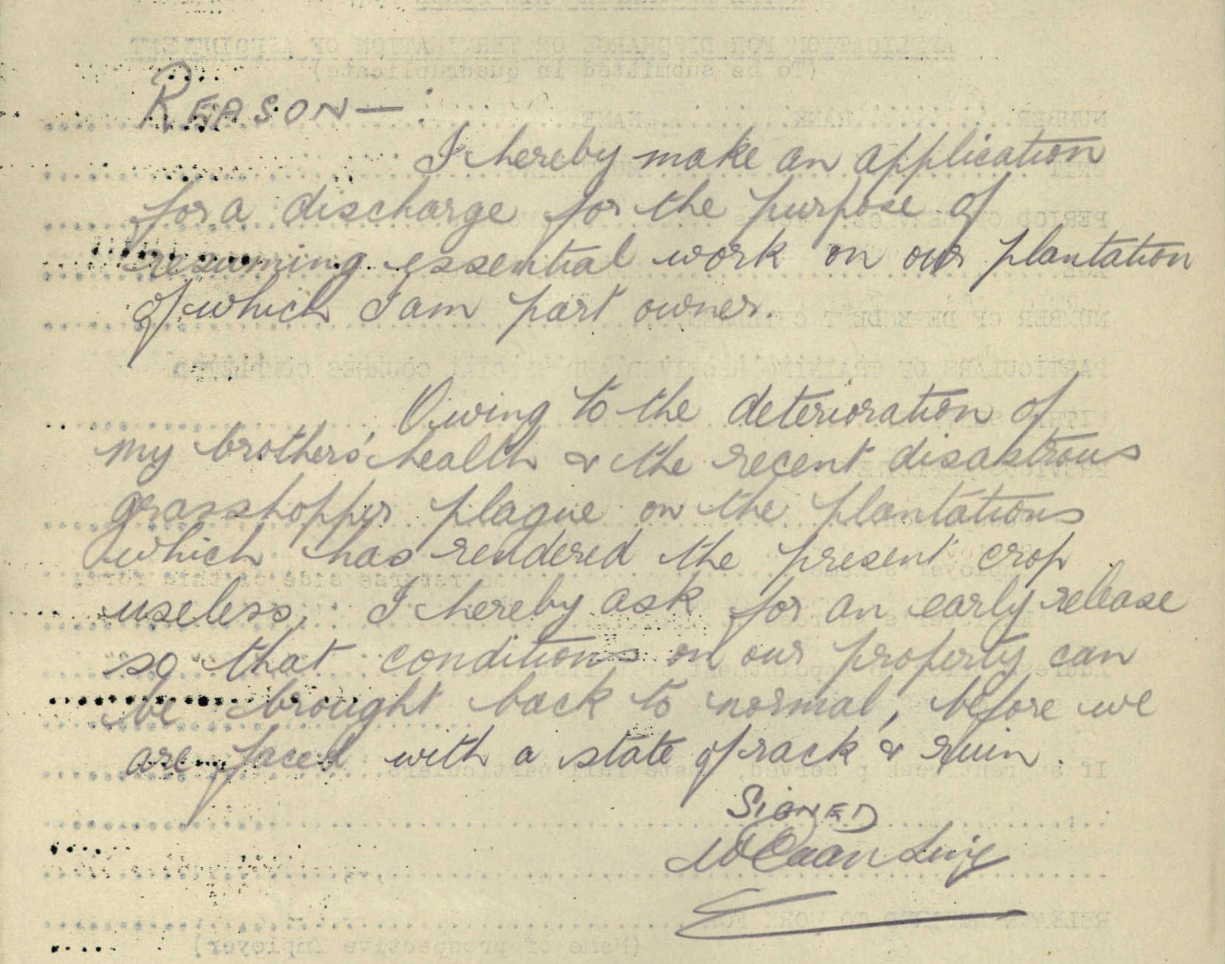 REASON—:
I hereby make an application
for a discharge for the purpose of
resuming essential work on our plantation
of which I am part owner.
Owing to the deterioration of
my brothers' health & the recent disastrous
grasshopper plague on the plantations
which has rendered the present crop
useless, I hereby ask for an early release
so that conditions on our property can
be brought back to normal, before we
are faced with a state of rack & ruin.
SIGNED